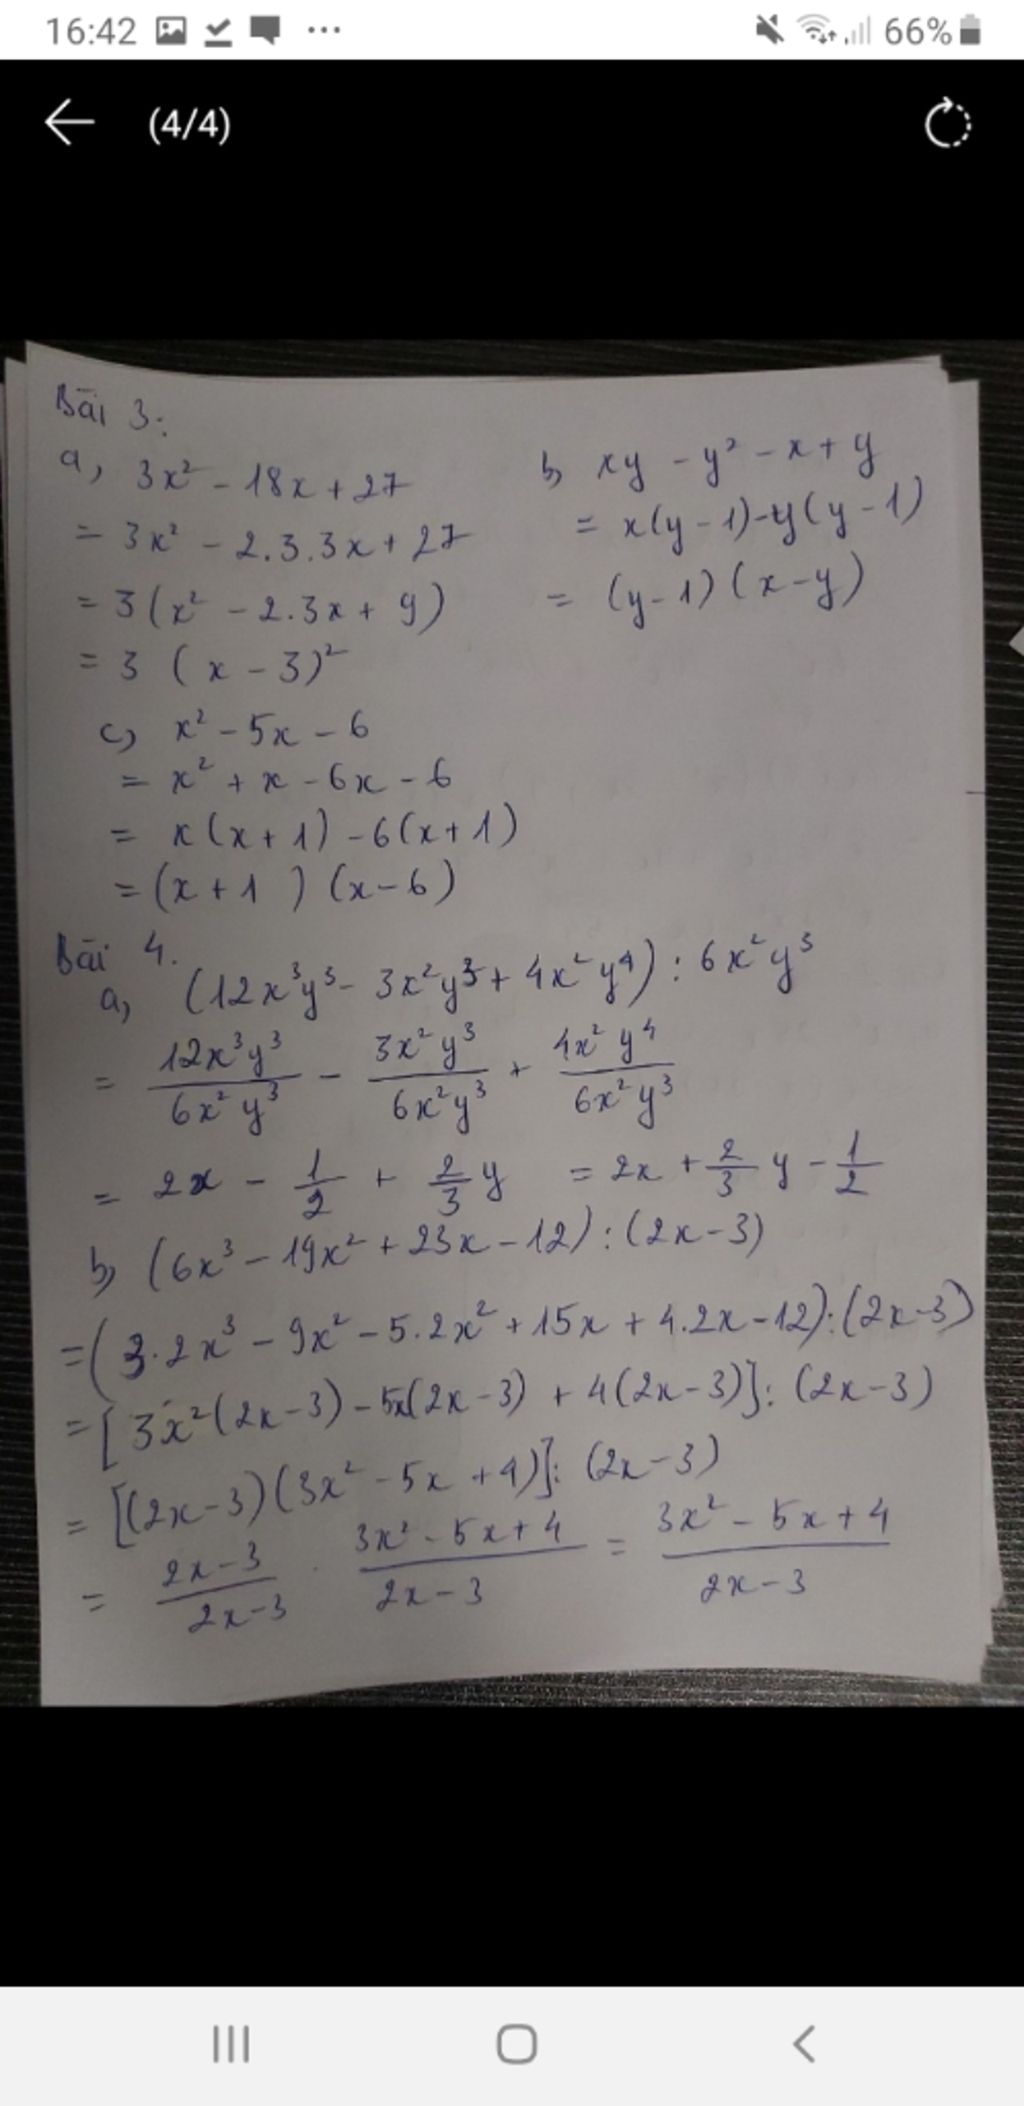 16:42 66%
(4/4)
Bài 3:
a, 3x² - 18x + 27
= 3x² - 2.3.3x + 27
= 3(x² - 2.3x + 9)
= 3 (x - 3)²
b, xy - y² - x + y
= x(y - 1) - y(y - 1)
= (y - 1)(x - y)
c, x² - 5x - 6
= x² + x - 6x - 6
= x(x + 1) - 6(x + 1)
= (x + 1)(x - 6)
Bài 4.
a, (12x³y³ - 3x²y³ + 4x²y⁴) : 6x²y³
= 12x³y³/6x²y³ - 3x²y³/6x²y³ + 4x²y⁴/6x²y³
= 2x - 1/2 + 2/3 y = 2x + 2/3 y - 1/2
b, (6x³ - 19x² + 23x - 12) : (2x - 3)
= (3.2x³ - 9x² - 5.2x² + 15x + 4.2x - 12) : (2x - 3)
= [3x²(2x - 3) - 5x(2x - 3) + 4(2x - 3)] : (2x - 3)
= [(2x - 3)(3x² - 5x + 4)] : (2x - 3)
= 2x - 3/2x - 3 . 3x² - 5x + 4/2x - 3 = 3x² - 5x + 4/2x - 3